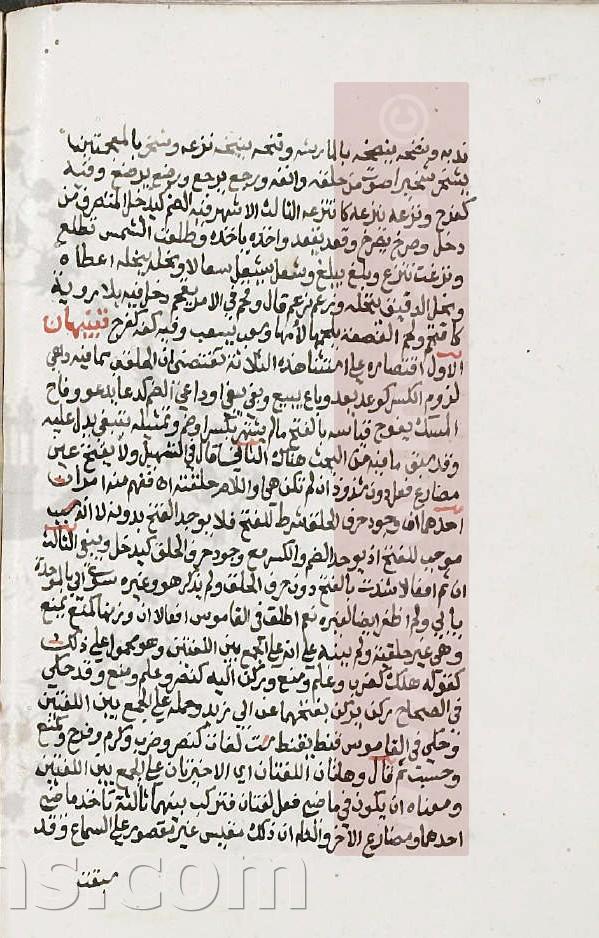 ندبه ونضحه ينضحه بالماء رشه ونتخه ينتخه نزعه وشخر بالمعجمتين
يشخر شخيرا صوت من حلقه وانفه ورجع يرجع ورضع يرضع وفيه
كفرح ونزعه ينزعه كانتزعه الثالث الاشهر فيه الضم كيدخل المتصرف من
دخل وصرخ يصرخ وقعد يقعد واخذه ياخذه وطلعت الشمس تطلع
ونزغت تنزغ وبلغ يبلغ وسعل يسعل سعالا ونحله ينحله اعطاه
ونخل الدقيق ينخله وزعم يزعم قال وقحم في الامر يقحم دخل فيه بلا روية
الاول اقتصاره على امثلة هذه الثلاثة يقتضي ان الحلقي بما فيه داعي
لزوم الكسر كوعد يعد وباع يبيع وبغى يبغي او داعي الضم كدعا يدعو وفاح
المسك يفوح قياسه بالفتح ما لم يشتهر بكسر او ضم وتمثيله بينبغي يدل عليه
وقد سبق ما فيه من البحث هناك الثاني قال في التسهيل ولا يفتح عين
مضارع فعل دون شذوذ ان لم تكن هي او اللام حلقية اه ففهم منه امران
احدهما ان وجود حرف الحلق شرط للفتح فلا يوجد الفتح بدونه لا انه سبب
موجب للفتح اذ يوجد الضم والكسر مع وجود حرف الحلق كيدخل ويبغي الثاني
ان ثم افعالا شذت بالفتح دون حرف الحلق ولم يذكر هو وغيره سوى ابى بالموحدة
يابى ولم اظفر ايضا لغيره نعم اطلق في القاموس افعالا ان وزنها كمنع يمنع
وهي غير حلقية ولم ينبه على انه على الجمع بين اللغتين وهو محمول على ذلك
كقوله هلك كضرب وعلم ومنع وركن اليه كنصر وعلم ومنع وقد حكي
في الصحاح ركن يركن بفتحهما عن ابي زيد وحمله على الجمع بين اللغتين
وحكي في القاموس قنط يقنط ست لغات كنصر وضرب وكرم وفرح وكمنع
وحسبت ثم قال وهاتان اللغتان اي الاخيرتان على الجمع بين اللغتين
ومعناه ان يكون في ماضي فعل لغتان فتركب بينهما ثالثة تاخذ ماضي
احدهما ومضارع الاخر واعلم ان ذلك مقيس غير مقصور على السماع وقد
سبقت
ns.com